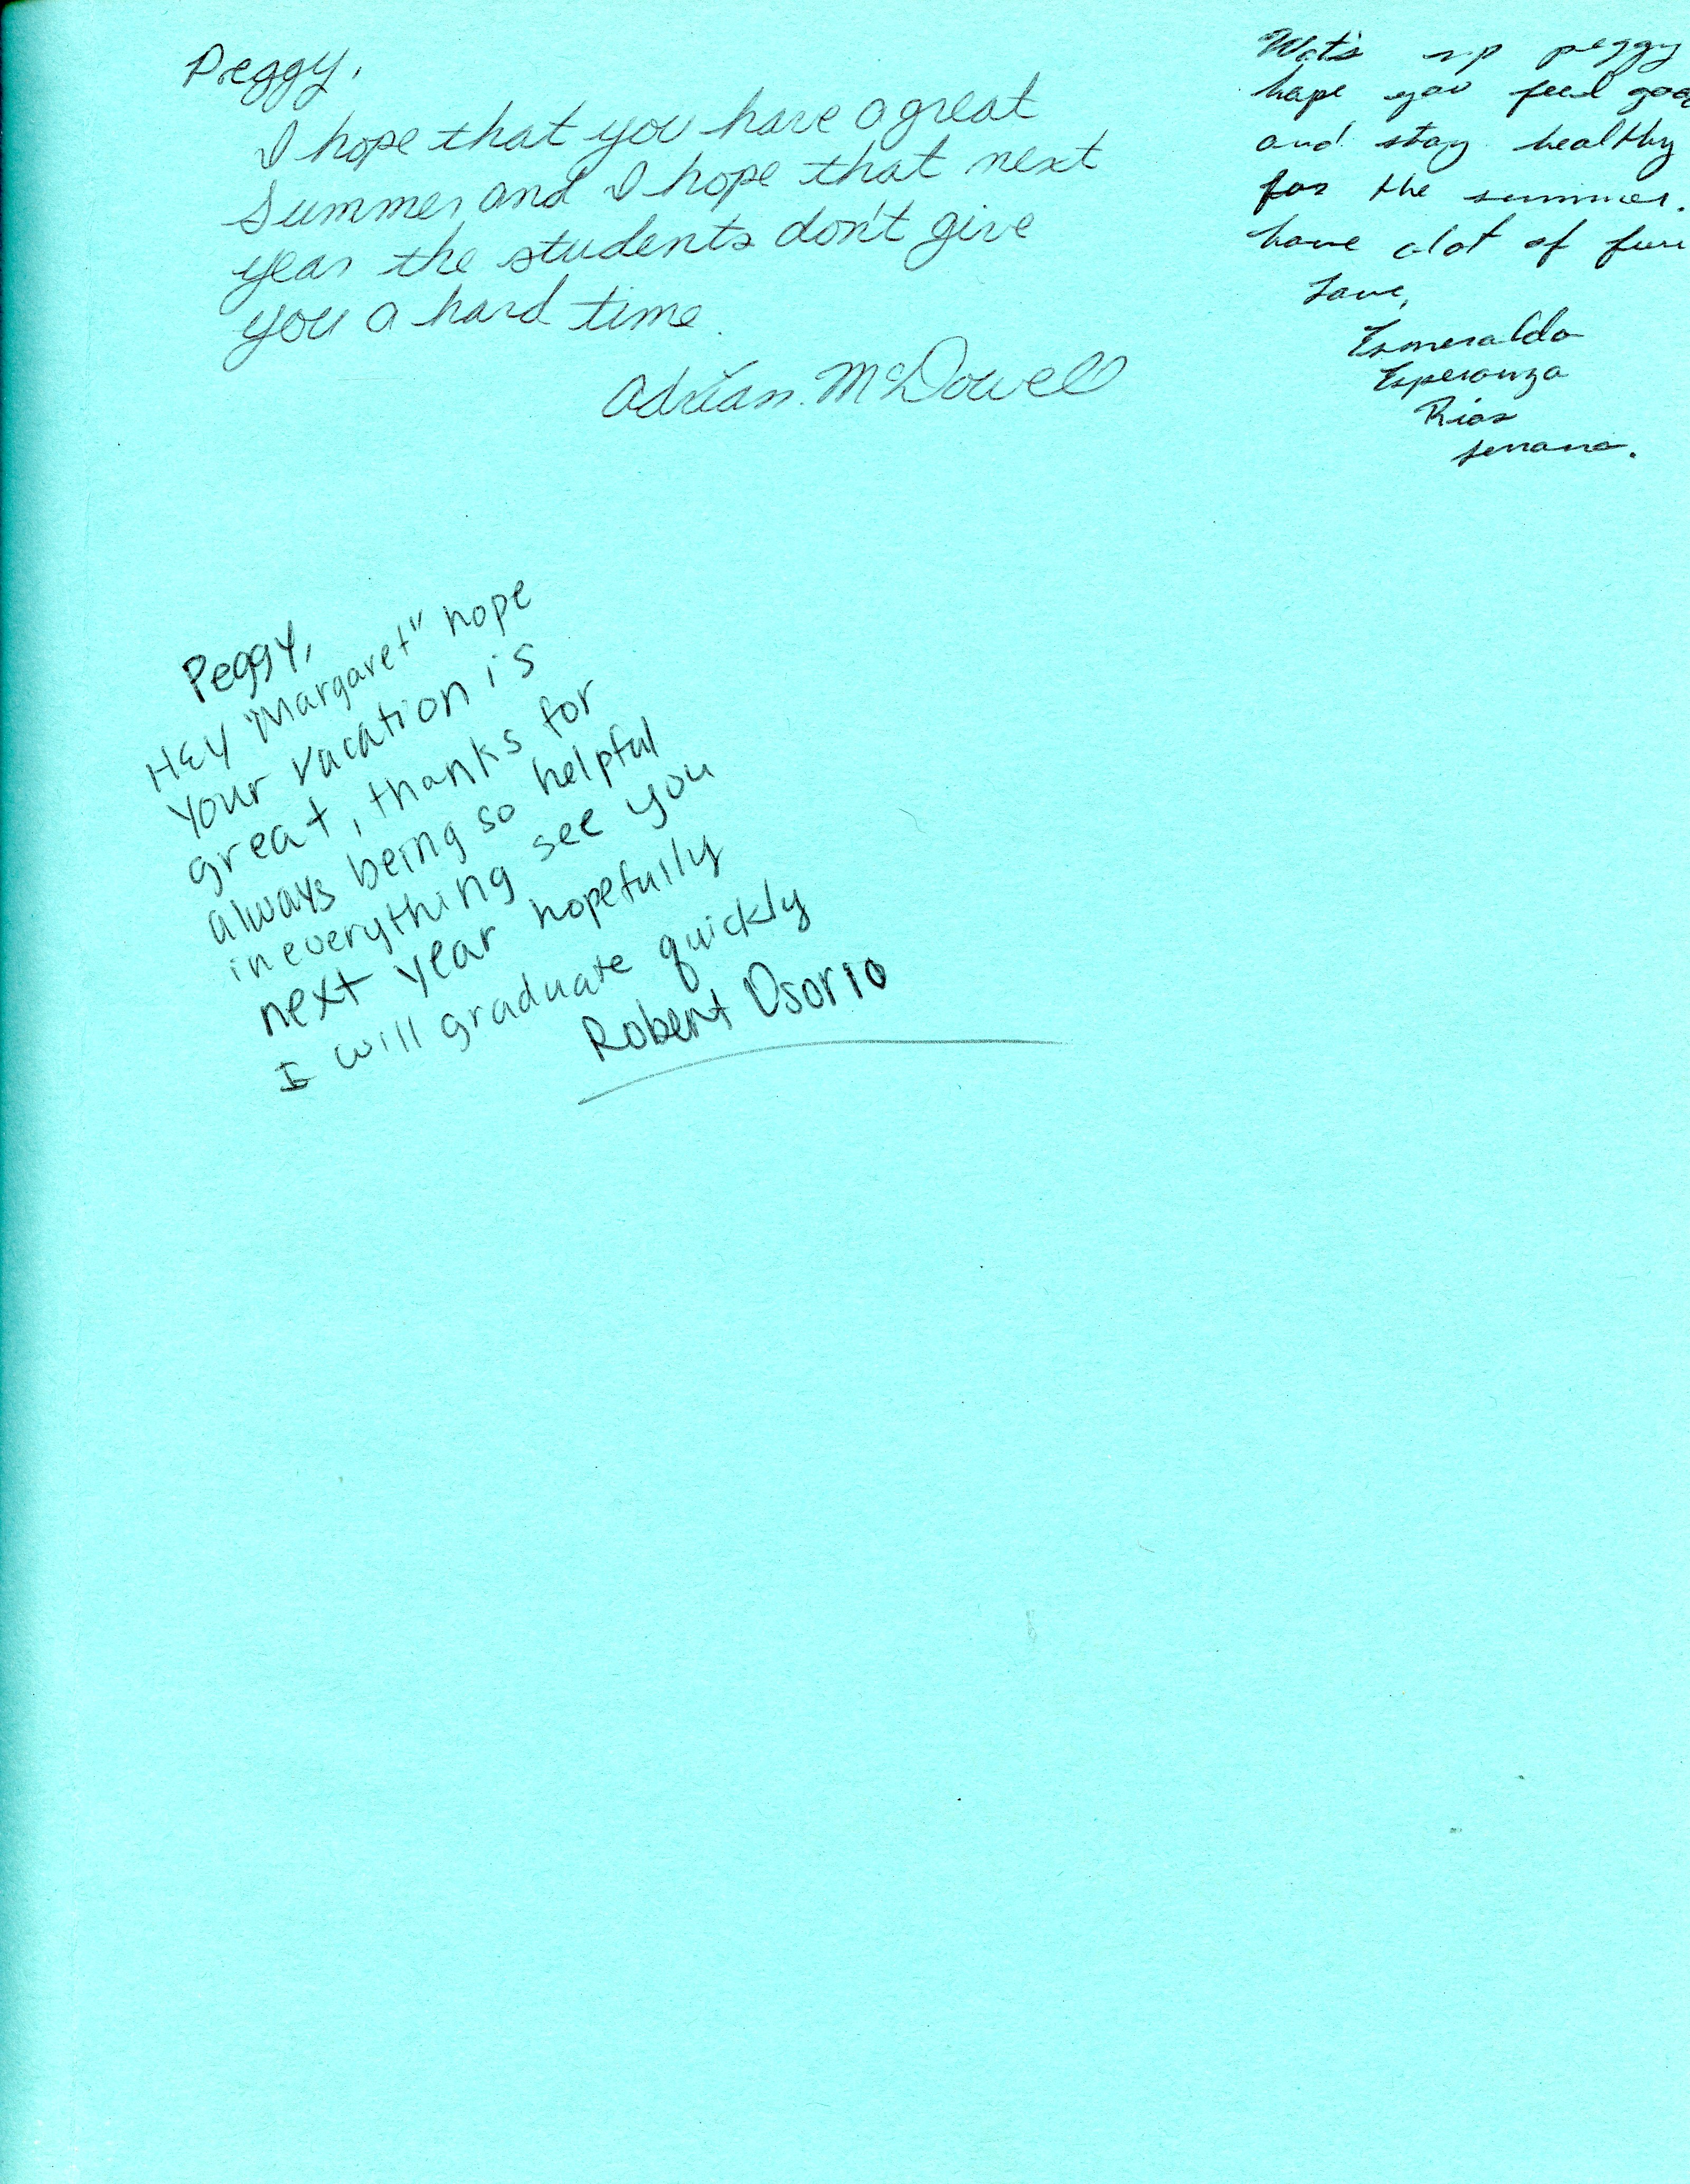 Peggy,
I hope that you have a great
Summer and I hope that next
year the students don't give
you a hard time.
Adrian McDowell
Wat's up peggy
hope you feel good
and stay healthy
for the summer.
have alot of fun
Love,
Esmeralda
Esperanza
Rios
Serrano.
Peggy,
HEY "Margaret" hope
your vacation is
great, thanks for
always being so helpful
in everything see you
next year hopefully
I will graduate quickly
Robert Osorio